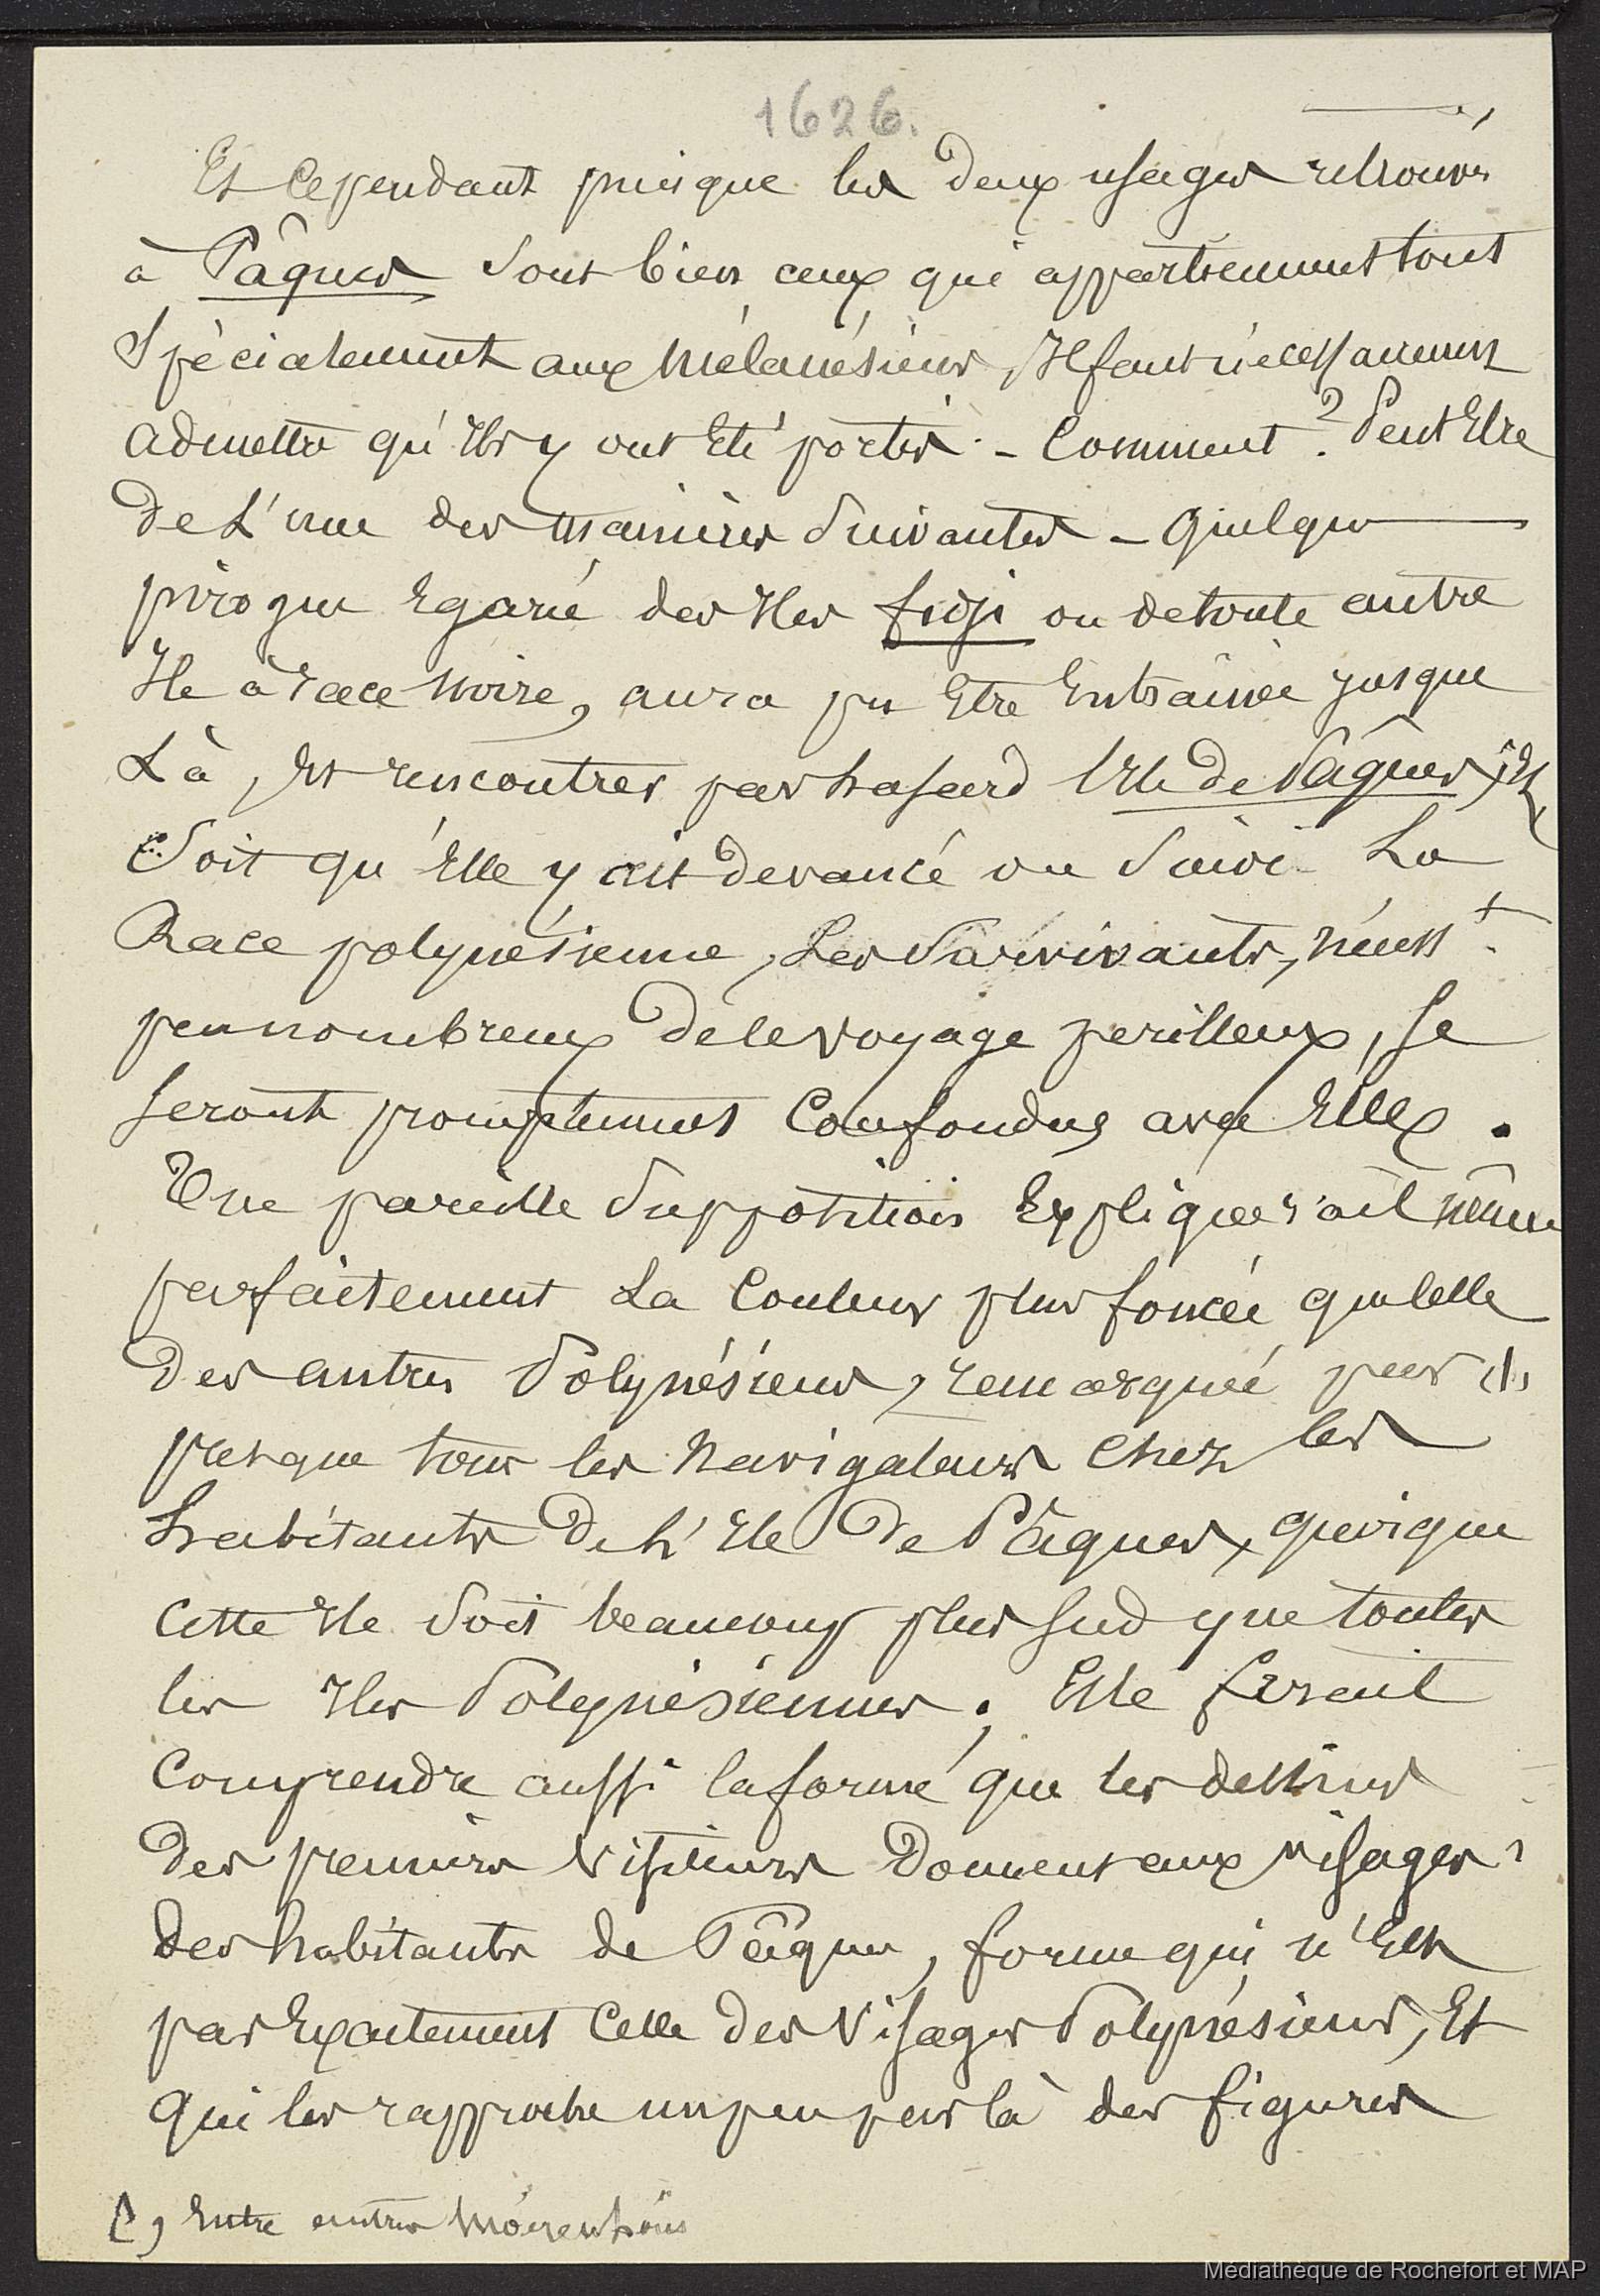 1626.
Et Cependant puisque les deux usages retrouvés
à Pâques sont bien ceux qui appartiennent tout
Spécialement aux Mélanésiens, Il faut nécessairement
admettre qu'Ils y ont Eté portés. - Comment ? Peut Etre
de L'une des manières Suivantes - quelque
pirogue Egarée des Iles fidji ou de toute autre
Ile à race Noire, aura pu Etre Entrainée jusque
Là, Et rencontrer par hasard l'Ile de Pâques; Et
Soit qu'Elle y ait devancé ou Suivi La
Race polynésienne, Les Survivants,
peu nombreux de ce voyage perilleux, se
seront promptement Confondus avec Elle.
Une pareille Supposition Expliquerait même
parfaitement La Couleur plus foncée que celle
des autres Polynésiens, remarquée par (1)
presque tous les Navigateurs Chez les
habitants de L'Ile de Pâques, quoique
cette Ile Soit beaucoup plus sud que toutes
les Iles Polynésiennes; Elle ferait
Comprendre aussi la forme que les dessins
des premiers Visiteurs donnent aux visages
des habitants de Pâques, forme qui n'Est
pas Exactement Celle des Visages Polynésiens, Et
qui les rapproche un peu par là des figures
(1) Entre autres Moërenhoüt
Médiathèque de Rochefort et MAP